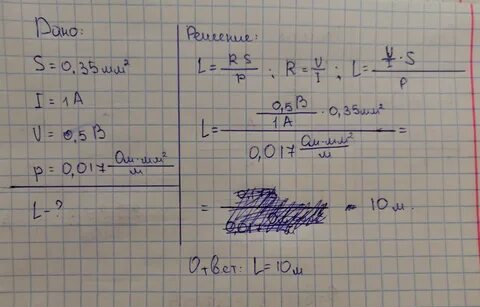 Дано:
S = 0,35 мм²
I = 1 А
V = 0,5 В
p = 0,017 Ом·мм²/м
L - ?
Решение:
L = RS/p ; R = V/I ; L = V/I · S / p
L = 0,5В/1А · 0,35мм² / 0,017 Ом·мм²/м =
= = 10 м
Ответ: L = 10 м